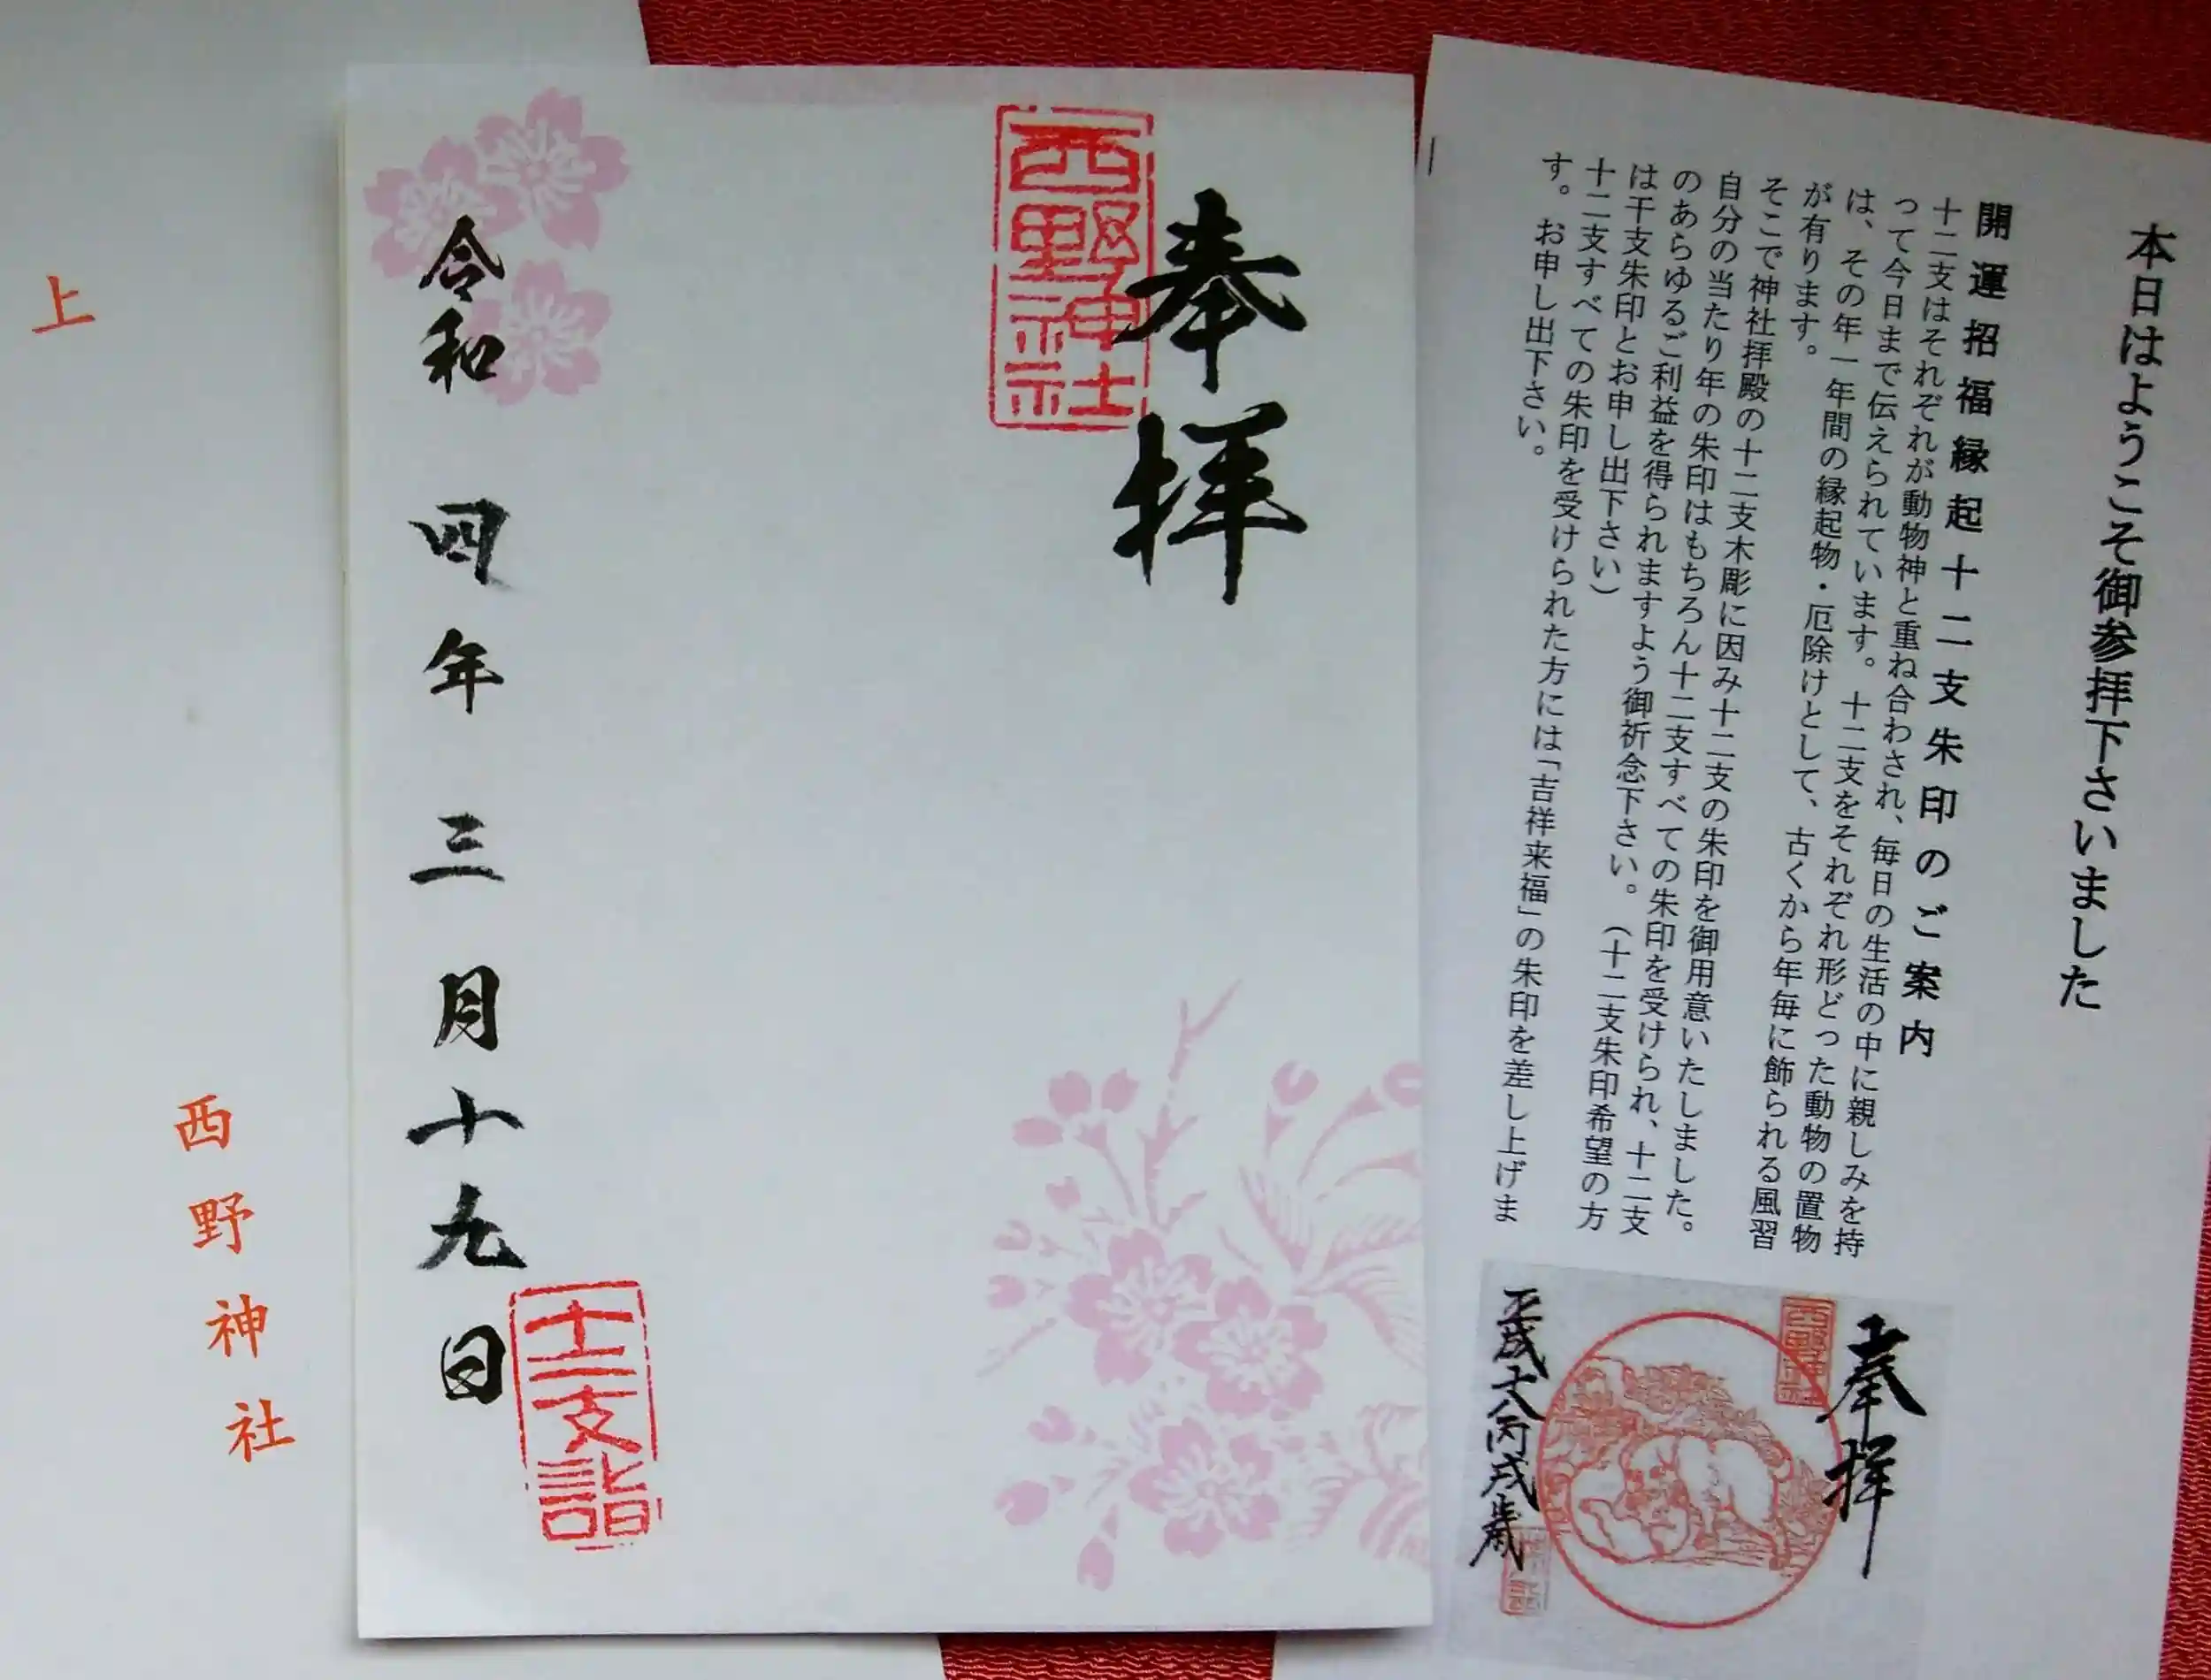 本日はようこそ御参拝下さいました
開運招福縁起十二支朱印のご案内
十二支はそれぞれが動物神と重ね合わされ、毎日の生活の中に親しみを持
って今日まで伝えられています。十二支をそれぞれ形どった動物の置物
は、その年一年間の縁起物・厄除けとして、古くから年毎に飾られる風習
が有ります。
そこで神社拝殿の十二支木彫に因み十二支の朱印を御用意いたしました。
自分の当たり年の朱印はもちろん十二支すべての朱印を受けられ、十二支
のあらゆるご利益を得られますよう御祈念下さい。（十二支朱印希望の方
は干支朱印とお申し出下さい）
十二支すべての朱印を受けられた方には「吉祥来福」の朱印を差し上げま
す。お申し出下さい。
奉拝
西野神社
平成十八丙戌歳
奉拝
西野神社
令和四年三月十九日
十二支詣
上
西野神社